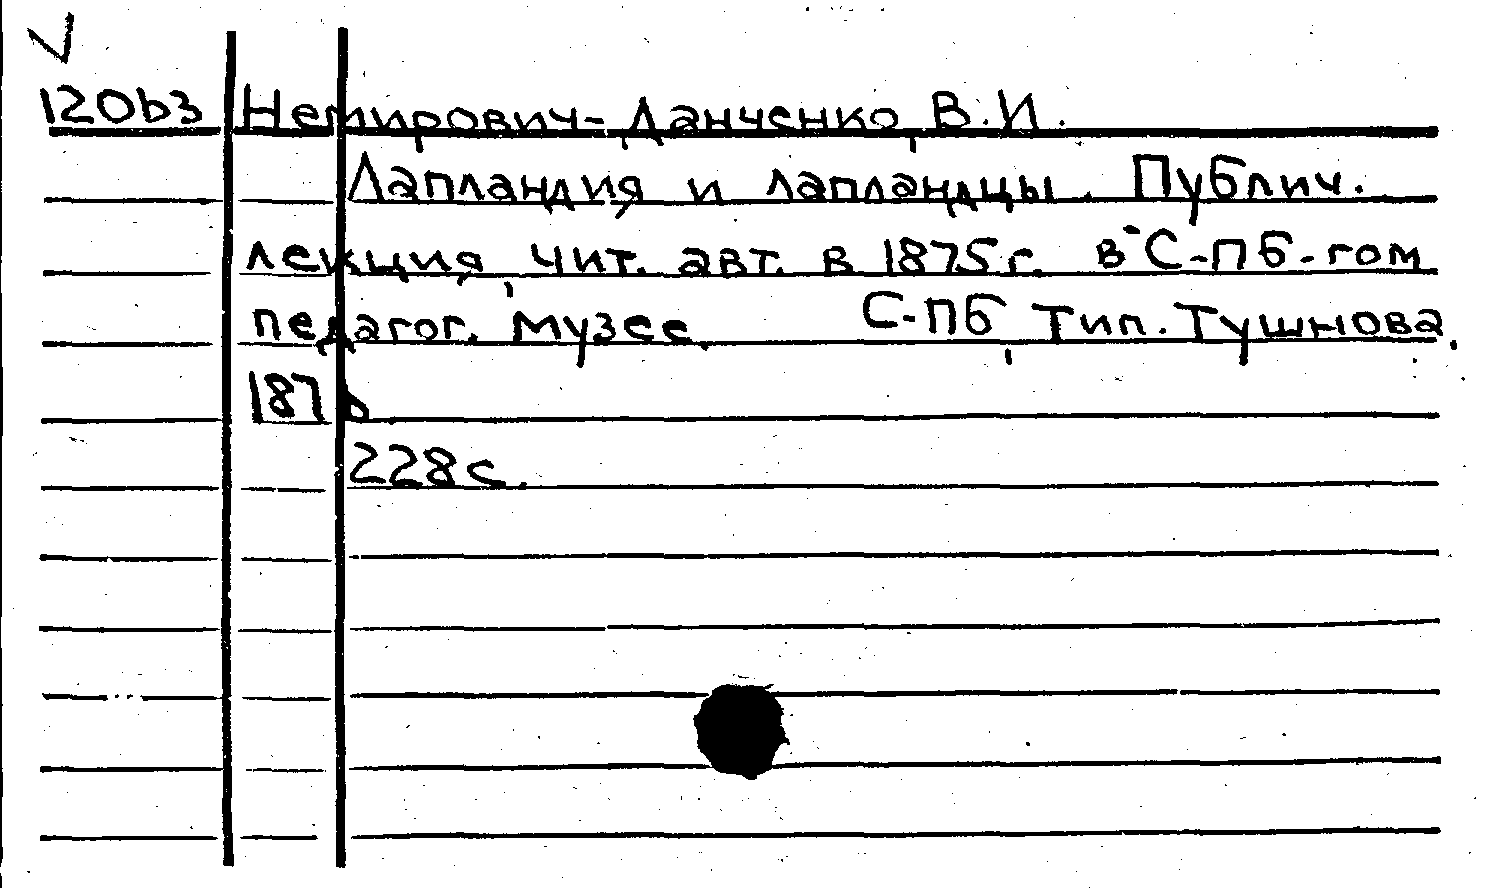 12063 Немирович-Данченко, В.И.
Лапландия и лапландцы. Публич.
лекция, чит. авт. в 1875 г. в С-ПБ-гом
педагог. Музее. С-ПБ, Тип. Тушнова.
1876
228 с.